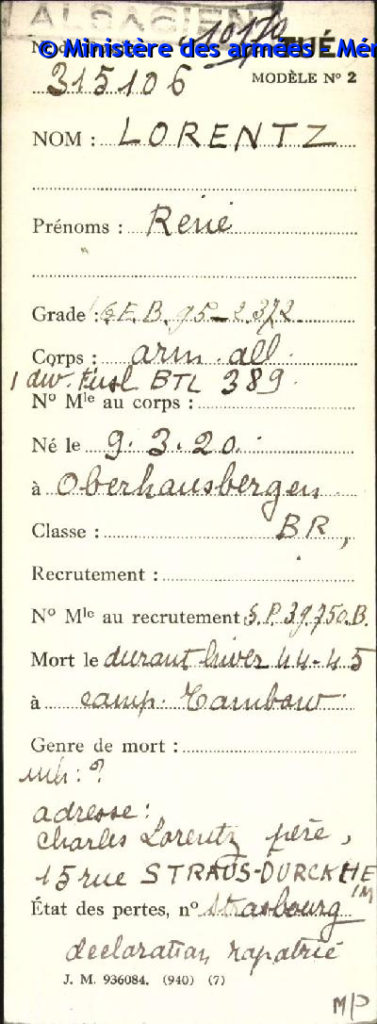 ALSACIEN
10170
© Ministère des armées - Mém
TUÉ
315106
MODÈLE N° 2
NOM : LORENTZ
Prénoms : René
Grade : G.E.B. 95-2372
Corps : arm. all.
1 div. Füsl BTL 389.
N° Mle au corps :
Né le 9.3.20.
à Oberhausbergen
Classe : BR,
Recrutement :
N° Mle au recrutement S.P. 39750.B.
Mort le durant hiver 44-45
à camp. Tambow
Genre de mort :
inh : ?
adresse :
Charles Lorentz père,
15 rue STRAUS-DURCKHEIM
État des pertes, n° Strasbourg
declaration rapatrié
J. M. 936084. (940) (7)
MP